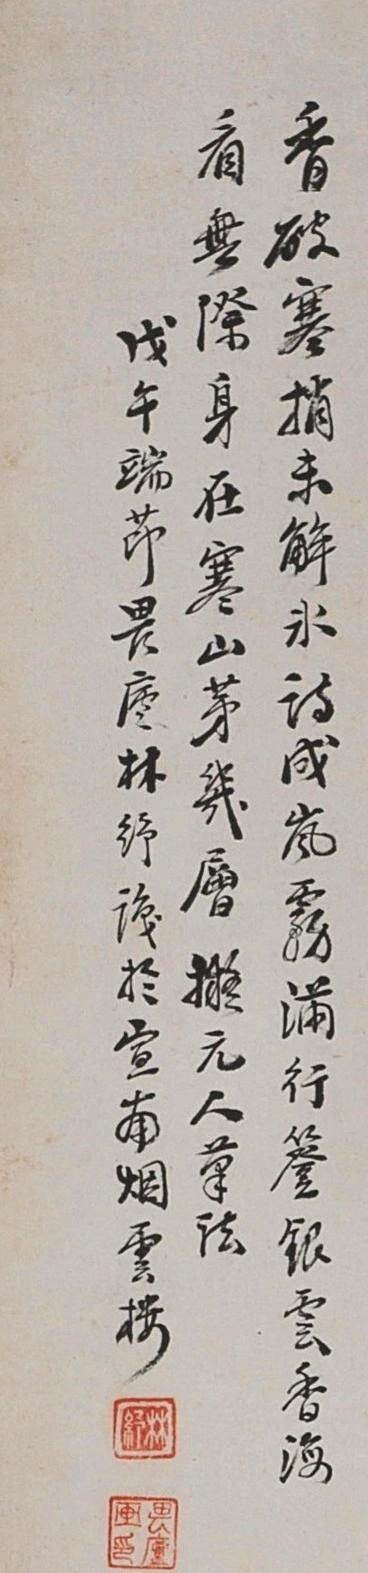 香破寒梢未解冰詩成嵐霧滿行簦銀雲香海
看無際身在寒山第幾層擬元人筆法
戊午端節畏廬林紓識於宣南烟雲樓
林紓
畏廬畫印